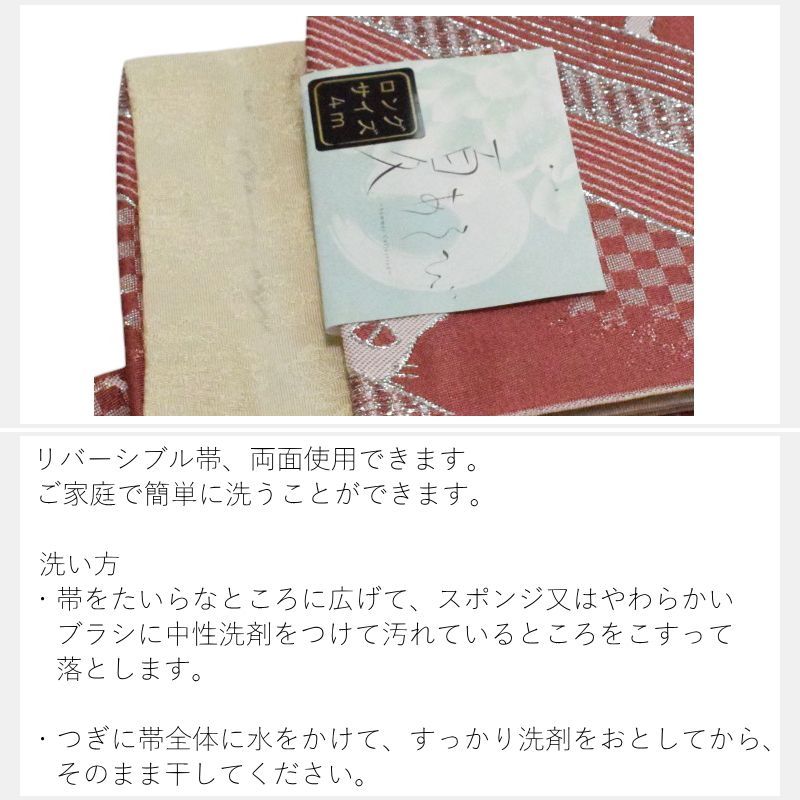 ロング
サイズ
4m
夏あそび
リバーシブル帯、両面使用できます。
ご家庭で簡単に洗うことができます。
洗い方
・帯をたいらなところに広げて、スポンジ又はやわらかい
ブラシに中性洗剤をつけて汚れているところをこすって
落とします。
・つぎに帯全体に水をかけて、すっかり洗剤をおとしてから、
そのまま干してください。